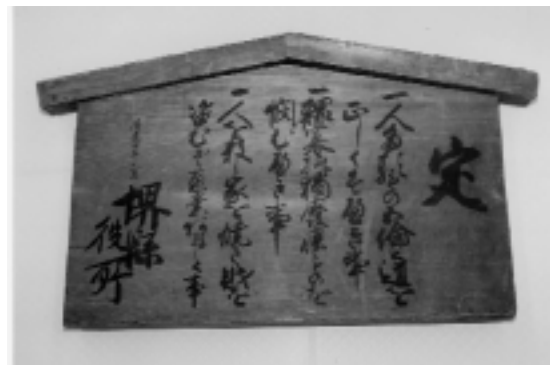 定
一人たるもの五倫之道を
正しくすへき事
一鰥寡孤獨癈疾のものを
憫むへき事
一人を殺し家を焼き財を
盗む等之悪業ある間しく事
堺縣
役所